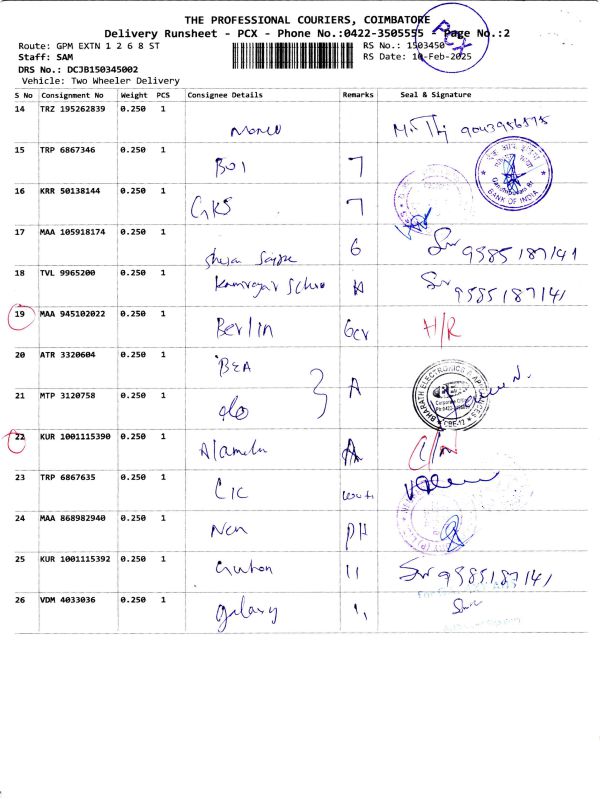 THE PROFESSIONAL COURIERS, COIMBATORE
Delivery Runsheet - PCX - Phone No.:0422-3505555 - Page No.:2
PCX
Route: GPM EXTN 1 2 6 8 ST
RS No.: 1503450
Staff: SAM
RS Date: 10-Feb-2025
DRS No.: DCJB150345002
Vehicle: Two Wheeler Delivery
S No Consignment No Weight PCS Consignee Details Remarks Seal & Signature
14 TRZ 195262839 0.250 1
9043956575
15 TRP 6867346 0.250 1 BOI 7
BANK OF INDIA
16 KRR 50138144 0.250 1 GKS 7
17 MAA 105918174 0.250 1 6 9585187141
18 TVL 9965200 0.250 1 A 9585187141
19 MAA 945102022 0.250 1 Berlin H/R
20 ATR 3320604 0.250 1 BEA
BHARATH ELECTRONICS & APPLIANCES
CBE-12
21 MTP 3120758 0.250 1 do A
22 KUR 1001115390 0.250 1 Alamelu A
23 TRP 6867635 0.250 1 CIC
24 MAA 868982940 0.250 1 PH
25 KUR 1001115392 0.250 1 11 9585187141
26 VDM 4033036 0.250 1 galaxy